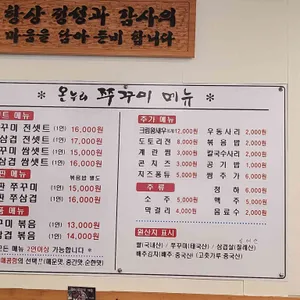 항상 정성과 감사의
마음을 담아 준비 합니다
온누리 쭈꾸미 메뉴
세트 메뉴
꾸미 전셋트 (1인) 16,000원
삼겹 전셋트 (1인) 17,000원
꾸미 쌈셋트 (1인) 16,000원
삼겹 쌈셋트 (1인) 17,000원
메뉴 볶음밥 별도
판 쭈꾸미 (1인) 15,000원
판 쭈삼겹 (1인) 16,000원
메뉴
미 볶음 (1인) 13,000원
겹 볶음 (1인) 14,000원
모든 메뉴 2인이상 가능합니다
선택!! (매운맛, 중간맛, 순한맛)
추가 메뉴
크림퐁새우 12,000원
도토리전 6,000원
계란찜 3,000원
콘치즈 3,000원
치즈퐁듀 5,000원
우동사리 2,000원
볶음밥 2,000원
칼국수사리 2,000원
공기밥 1,000원
쌈추가 2,000원
주류
소주 5,000원
막걸리 4,000원
청하 6,000원
맥주 5,000원
음료수 2,000원
원산지 표시
쌀(국내산) / 쭈꾸미(태국산) / 삼겹살(칠레산)
배추김치(배추 중국산) (고춧가루 중국산)